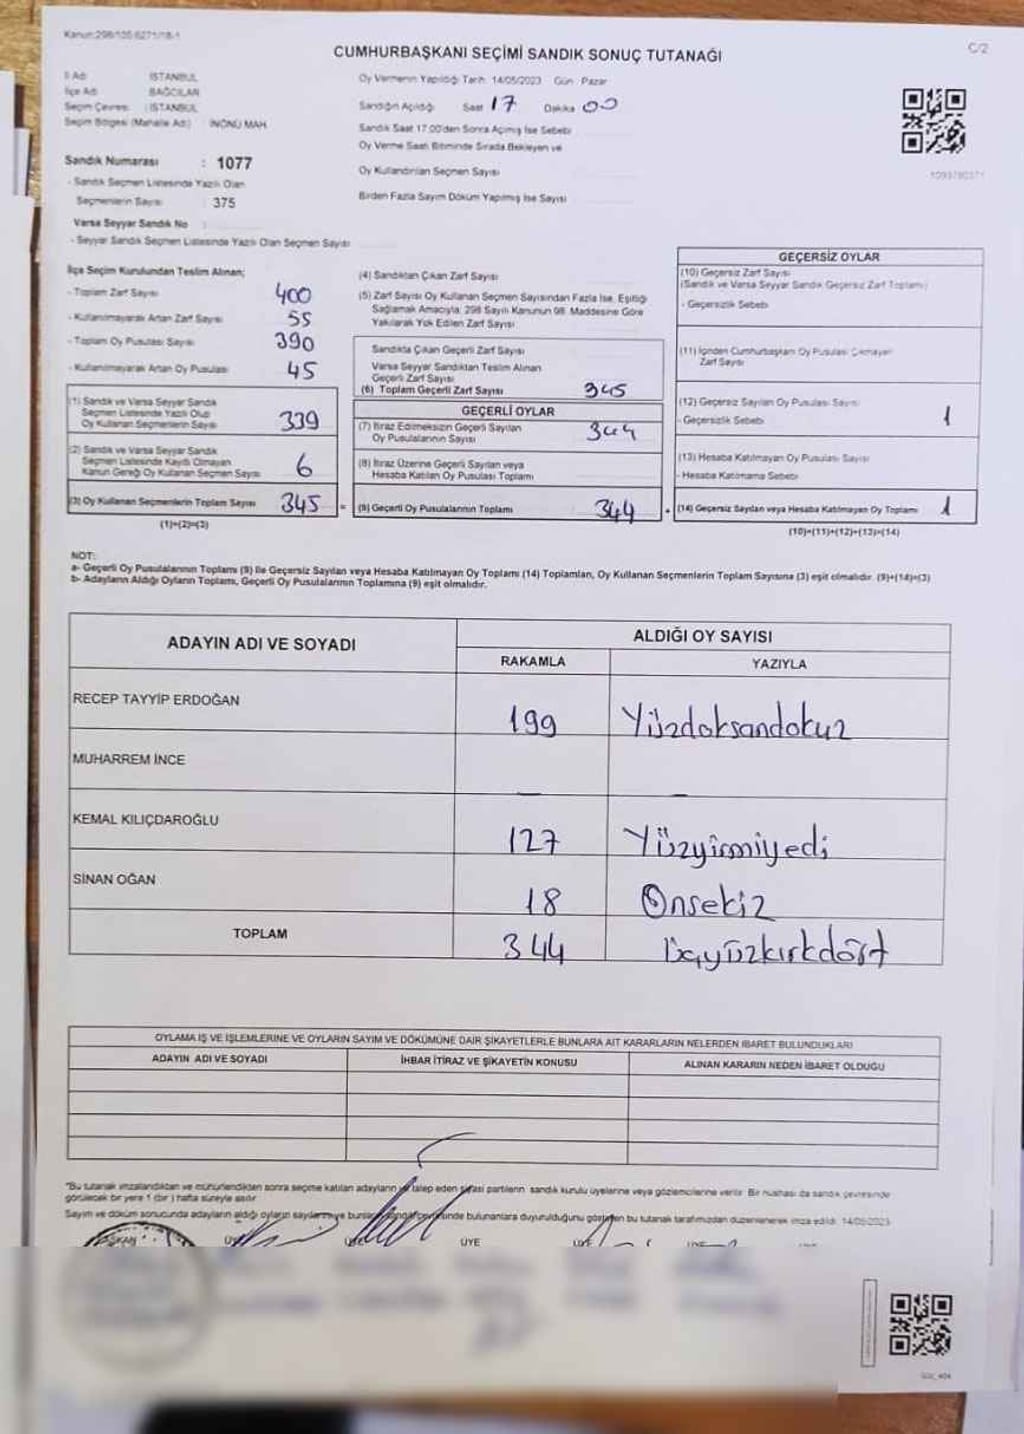 Kanun:298/105 6271/18-1
C/2
CUMHURBAŞKANI SEÇİMİ SANDIK SONUÇ TUTANAĞI
İl Adı : İSTANBUL
İlçe Adı : BAĞCILAR
Seçim Çevresi : İSTANBUL
Seçim Bölgesi (Mahalle Adı) : İNÖNÜ MAH.
Oy Vermenin Yapıldığı Tarih: 14/05/2023 Gün: Pazar
Sandığın Açıldığı Saat 17 Dakika 00
Sandık Saat 17.00'den Sonra Açılmış İse Sebebi
Oy Verme Saati Bitiminde Sırada Bekleyen ve
Oy Kullandırılan Seçmen Sayısı
Birden Fazla Sayım Döküm Yapılmış İse Sayısı
Sandık Numarası : 1077
- Sandık Seçmen Listesinde Yazılı Olan
Seçmenlerin Sayısı : 375
Varsa Seyyar Sandık No :
- Seyyar Sandık Seçmen Listesinde Yazılı Olan Seçmen Sayısı
İlçe Seçim Kurulundan Teslim Alınan;
- Toplam Zarf Sayısı 400
- Kullanılmayarak Artan Zarf Sayısı 55
- Toplam Oy Pusulası Sayısı 390
- Kullanılmayarak Artan Oy Pusulası 45
(1) Sandık ve Varsa Seyyar Sandık
Seçmen Listesinde Yazılı Olup
Oy Kullanan Seçmenlerin Sayısı 339
(2) Sandık ve Varsa Seyyar Sandık
Seçmen Listesinde Kayıtlı Olmayan
Kanun Gereği Oy Kullanan Seçmen Sayısı 6
(3) Oy Kullanan Seçmenlerin Toplam Sayısı 345 =
(1)+(2)=(3)
(4) Sandıktan Çıkan Zarf Sayısı
(5) Zarf Sayısı Oy Kullanan Seçmen Sayısından Fazla İse, Eşitliği
Sağlamak Amacıyla; 298 Sayılı Kanunun 98. Maddesine Göre
Yakılarak Yok Edilen Zarf Sayısı
Sandıkta Çıkan Geçerli Zarf Sayısı
Varsa Seyyar Sandıktan Teslim Alınan
Geçerli Zarf Sayısı
(6) Toplam Geçerli Zarf Sayısı 345
GEÇERLİ OYLAR
(7) İtiraz Edilmeksizin Geçerli Sayılan
Oy Pusulalarının Sayısı 344
(8) İtiraz Üzerine Geçerli Sayılan veya
Hesaba Katılan Oy Pusulası Toplamı
(9) Geçerli Oy Pusulalarının Toplamı 344 +
GEÇERSİZ OYLAR
(10) Geçersiz Zarf Sayısı
(Sandık ve Varsa Seyyar Sandık Geçersiz Zarf Toplamı)
- Geçersizlik Sebebi
(11) İçinden Cumhurbaşkanı Oy Pusulası Çıkmayan
Zarf Sayısı
(12) Geçersiz Sayılan Oy Pusulası Sayısı 1
- Geçersizlik Sebebi
(13) Hesaba Katılmayan Oy Pusulası Sayısı
- Hesaba Katılmama Sebebi
(14) Geçersiz Sayılan veya Hesaba Katılmayan Oy Toplamı 1
(10)+(11)+(12)+(13)=(14)
NOT:
a- Geçerli Oy Pusulalarının Toplamı (9) ile Geçersiz Sayılan veya Hesaba Katılmayan Oy Toplamı (14) Toplamları, Oy Kullanan Seçmenlerin Toplam Sayısına (3) eşit olmalıdır. (9)+(14)=(3)
b- Adayların Aldığı Oyların Toplamı, Geçerli Oy Pusulalarının Toplamına (9) eşit olmalıdır.
ADAYIN ADI VE SOYADI ALDIĞI OY SAYISI
RAKAMLA YAZIYLA
RECEP TAYYİP ERDOĞAN 199 Yüzdoksandokuz
MUHARREM İNCE — —
KEMAL KILIÇDAROĞLU 127 Yüzyirmiyedi
SİNAN OĞAN 18 Onsekiz
TOPLAM 344 Üçyüzkırkdört
OYLAMA İŞ VE İŞLEMLERİNE VE OYLARIN SAYIM VE DÖKÜMÜNE DAİR ŞİKAYETLERLE BUNLARA AİT KARARLARIN NELERDEN İBARET BULUNDUKLARI
ADAYIN ADI VE SOYADI İHBAR İTİRAZ VE ŞİKAYETİN KONUSU ALINAN KARARIN NEDEN İBARET OLDUĞU
"Bu tutanak imzalandıktan ve mühürlendikten sonra seçime katılan adayların talep eden siyasi partilerin sandık kurulu üyelerine veya gözlemcilerine verilir. Bir nüshası da sandık çevresinde
görülecek bir yere 1 (bir) hafta süreyle asılır.
Sayım ve döküm sonucunda adayların aldığı oyların sayılarını ve bunların bulunanlara duyurulduğunu gösteren bu tutanak tarafımızdan düzenlenerek imza edildi. 14/05/2023
ÜYE